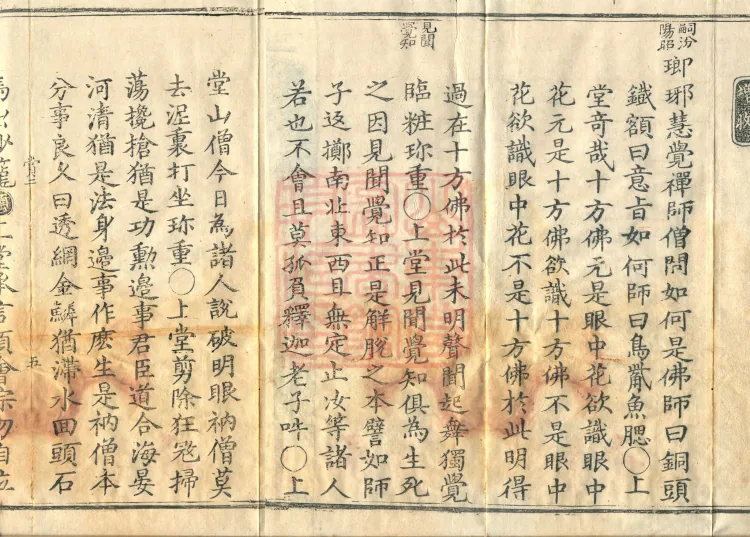 嗣汾
陽昭
瑯琊慧覺禪師僧問如何是佛師曰銅頭
鐵額曰意旨如何師曰鳥觜魚腮〇上
堂奇哉十方佛元是眼中花欲識眼中
花元是十方佛欲識十方佛不是眼中
花欲識眼中花不是十方佛於此明得
過在十方佛於此未明聲聞起舞獨覺
臨粧珎重〇上堂見聞覺知俱為生死
見聞
覺知
之因見聞覺知正是解脫之本譬如師
子返擲南北東西且無定止汝等諸人
若也不會且莫孤負釋迦老子吽〇上
堂山僧今日為諸人說破明眼衲僧莫
去泥裏打坐珎重〇上堂剪除狂寇掃
蕩攙槍猶是功勳邊事君臣道合海晏
河清猶是法身邊事作麽生是衲僧本
分事良久曰透網金鱗猶滯水回頭石
五